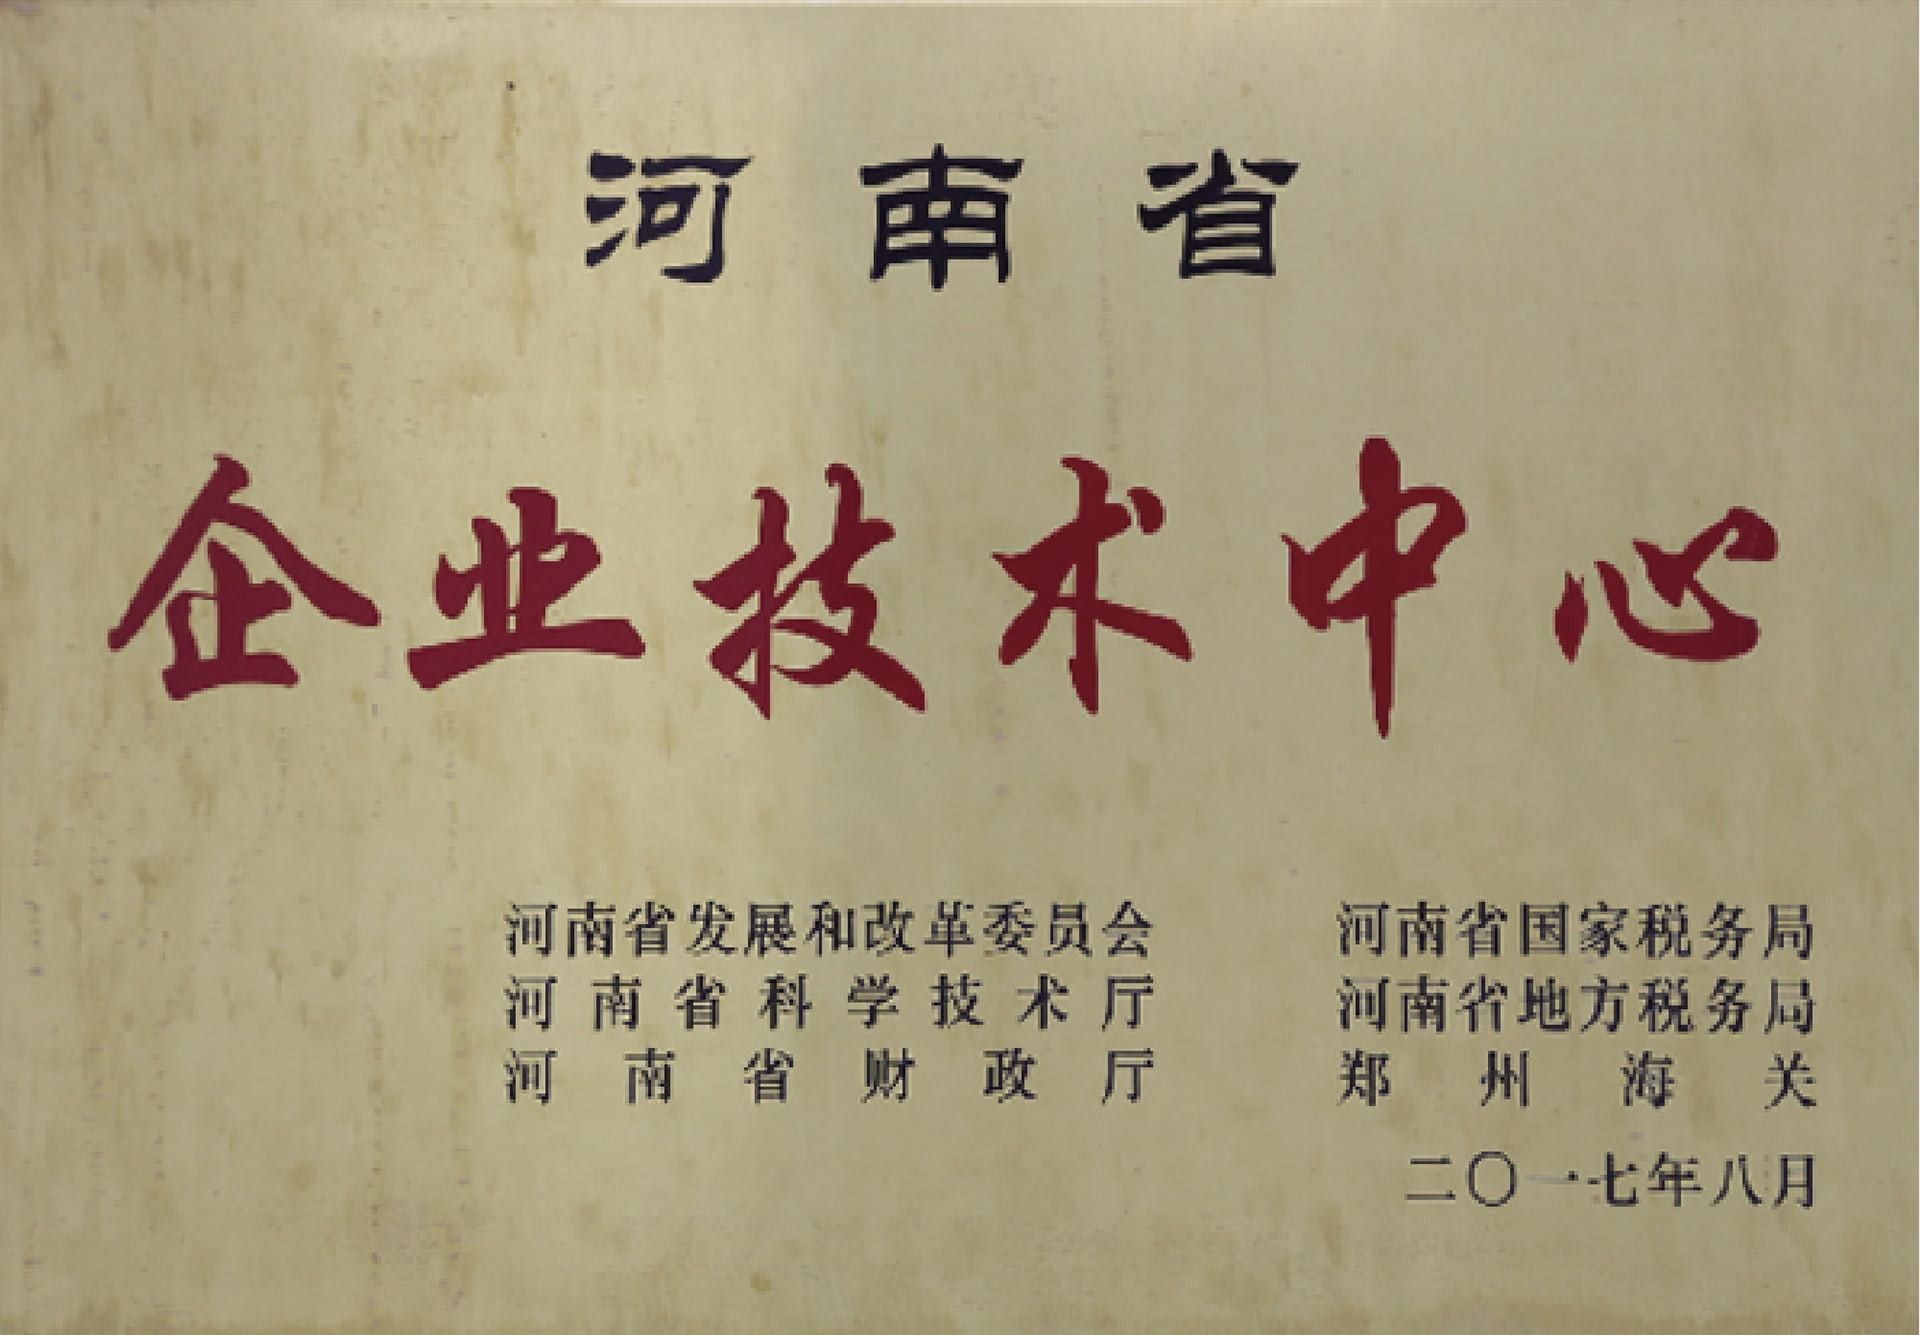 河南省
企业技术中心
河南省发展和改革委员会 河南省国家税务局
河南省科学技术厅 河南省地方税务局
河南省财政厅 郑州海关
二〇一七年八月